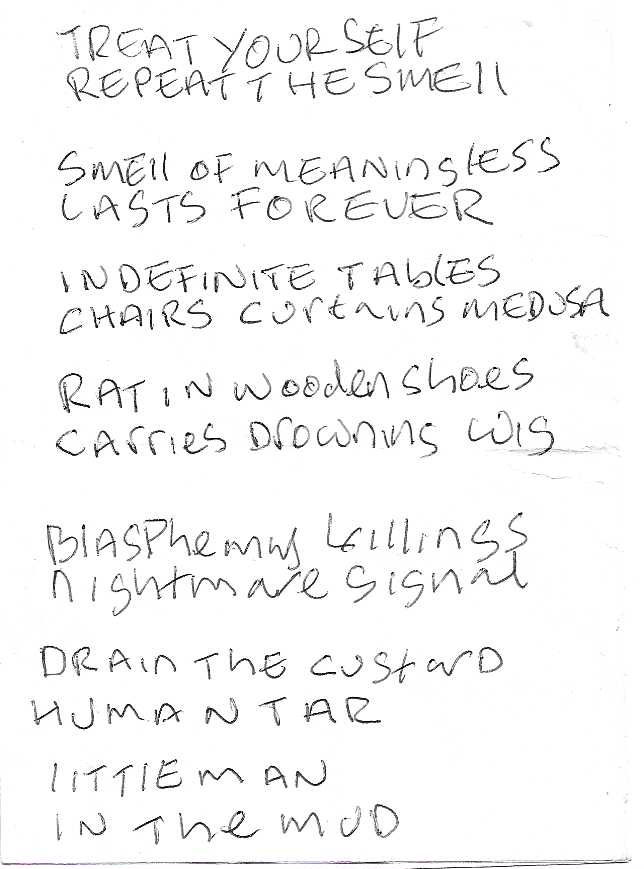 TREAT YOURSELF
REPEAT THE SMEll
SMEll OF MEANINglESS
LASTS FOREVER
INDEFINITE TAblES
CHAIRS Curtains MEDUSA
RAT IN Wooden Shoes
CArries DrowninG WiG
BlasPhemy killings
nightmare Signal
DRAin The custarD
HUMAN TAR
lITTlE MAN
IN The MUD